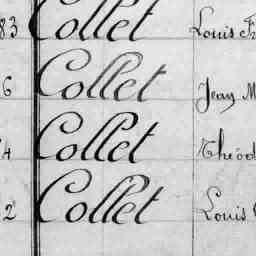 83 Collet Louis F
6 Collet Jean M
4 Collet Théod
2 Collet Louis